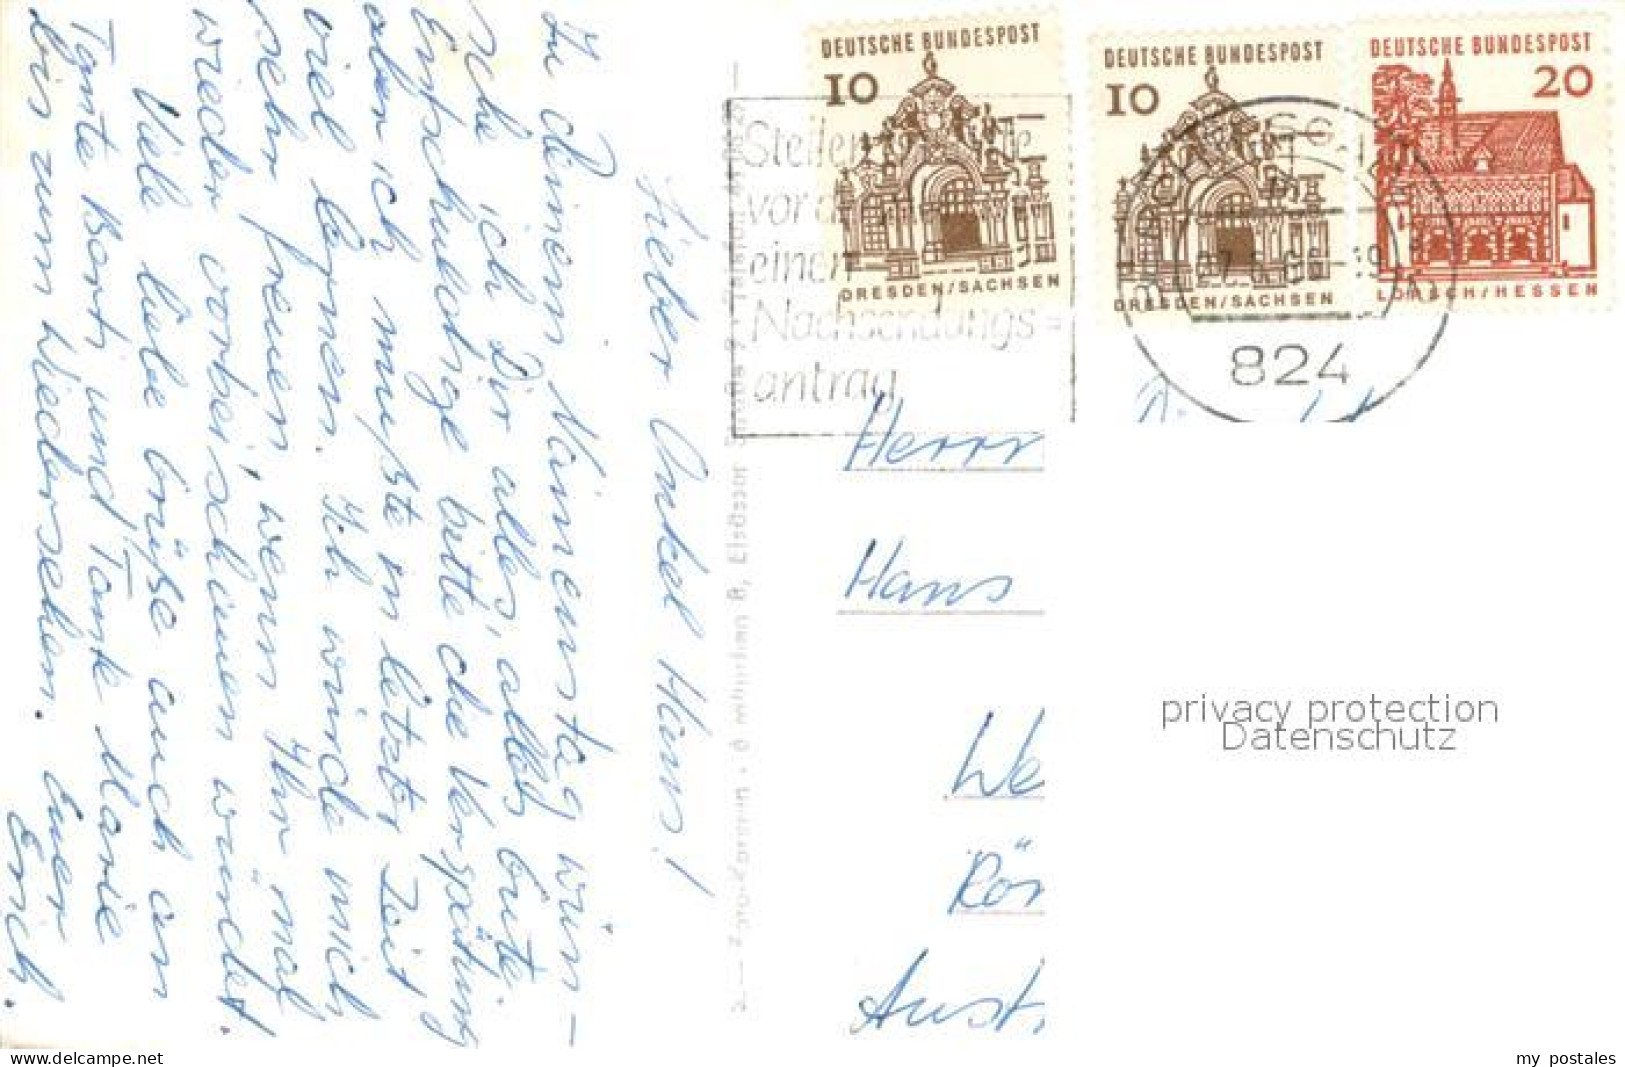 Lieber Onkel Hans!
Zu deinem Namenstag wün-
sche ich Dir alles, alles Gute.
Entschuldige bitte die Verspätung
aber ich mußte in letzter Zeit
viel lernen. Ich würde mich
sehr freuen, wenn Ihr mal
wieder vorbeischauen würdet.
Viele liebe Grüße auch an
Tante Berti und Tante Marie
bis zum Wiedersehen. Euer
Erich.
DEUTSCHE BUNDESPOST
10
DRESDEN/SACHSEN
DEUTSCHE BUNDESPOST
10
DRESDEN/SACHSEN
DEUTSCHE BUNDESPOST
20
LORSCH/HESSEN
Stellen
vor
einen
Nachsendungs=
antrag
824
Herrn
Hans
We
Rö
Aust
privacy protection
Datenschutz
www.delcampe.net
my postales